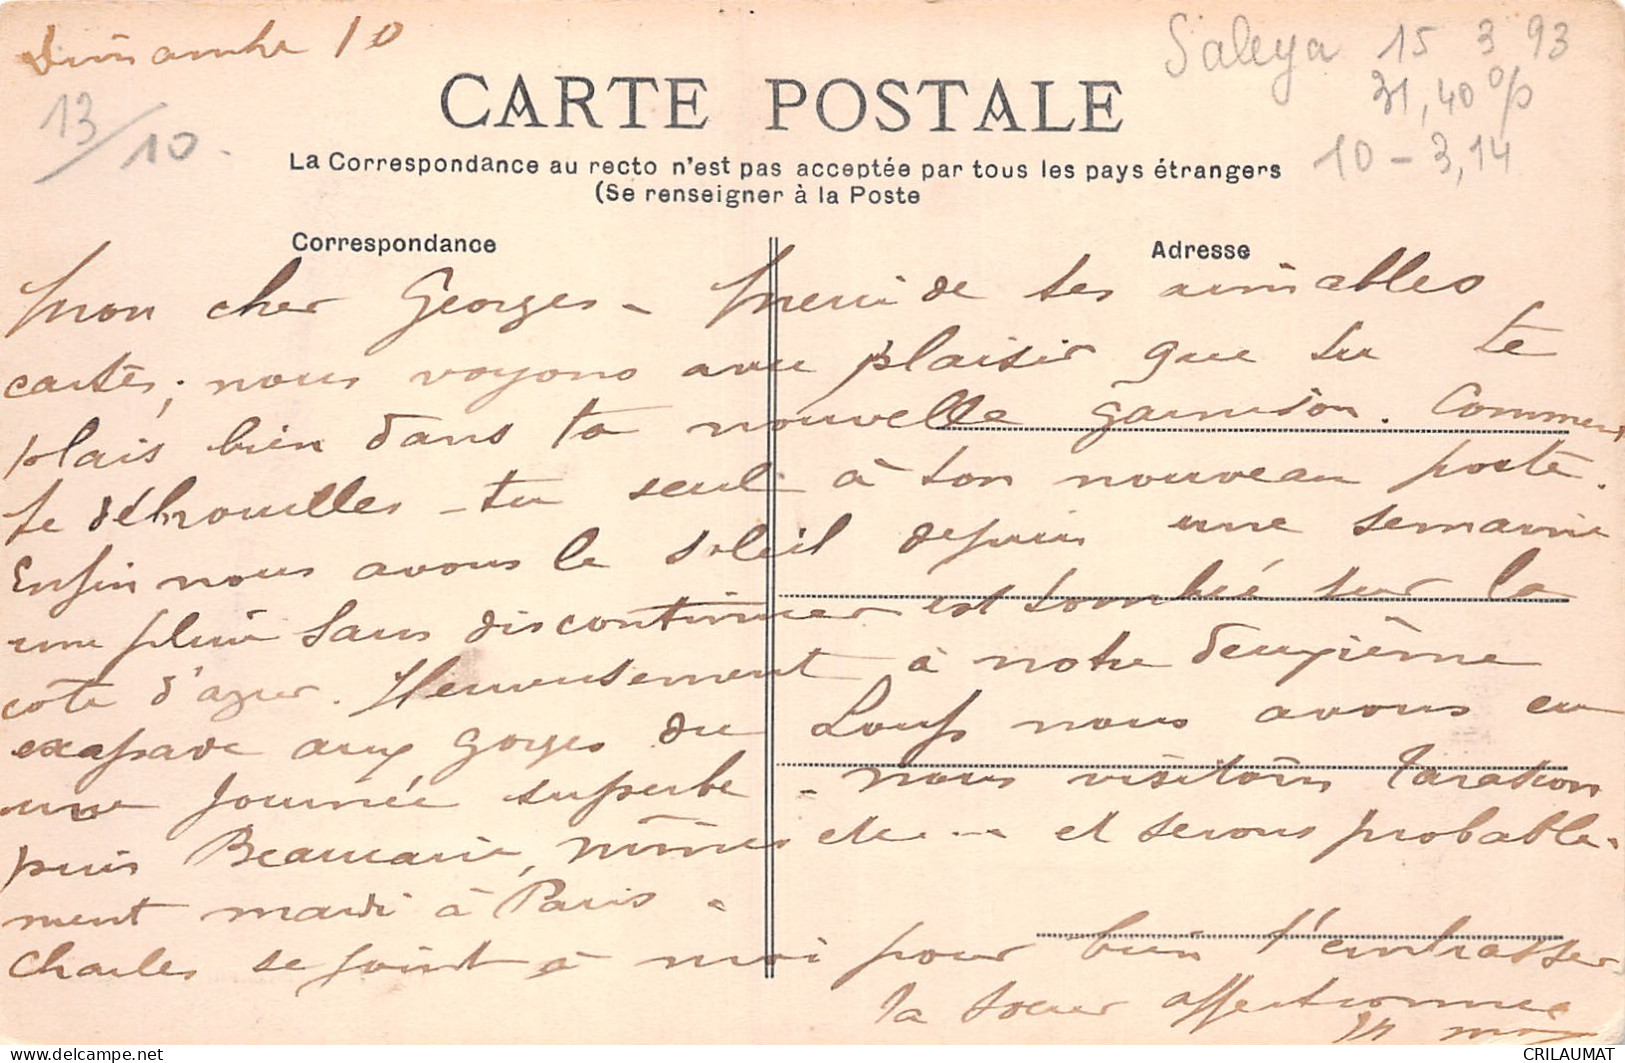 Dimanche 10
Saleya 15 3 93
31,40 %
13/10.
10 - 3,14
CARTE POSTALE
La Correspondance au recto n'est pas acceptée par tous les pays étrangers
(Se renseigner à la Poste
Correspondance
Adresse
Mon cher Georges - Merci de tes aimables
cartes ; nous voyons avec plaisir que tu te
plais bien dans ta nouvelle garnison. Comment
te débrouilles-tu seul à ton nouveau poste.
Enfin nous avons le soleil depuis une semaine
une pluie sans discontinuer est tombée sur la
cote d'azur. Heureusement à notre deuxième
aux gorges du Loup nous avons eu
une journée superbe - nous visitons Tarascon
puis Beaucaire, nîmes etc... et serons probable-
ment mardi à Paris -
Charles se joint à moi pour bien t'embrasser
ta soeur affectionnée
CRILAUMAT